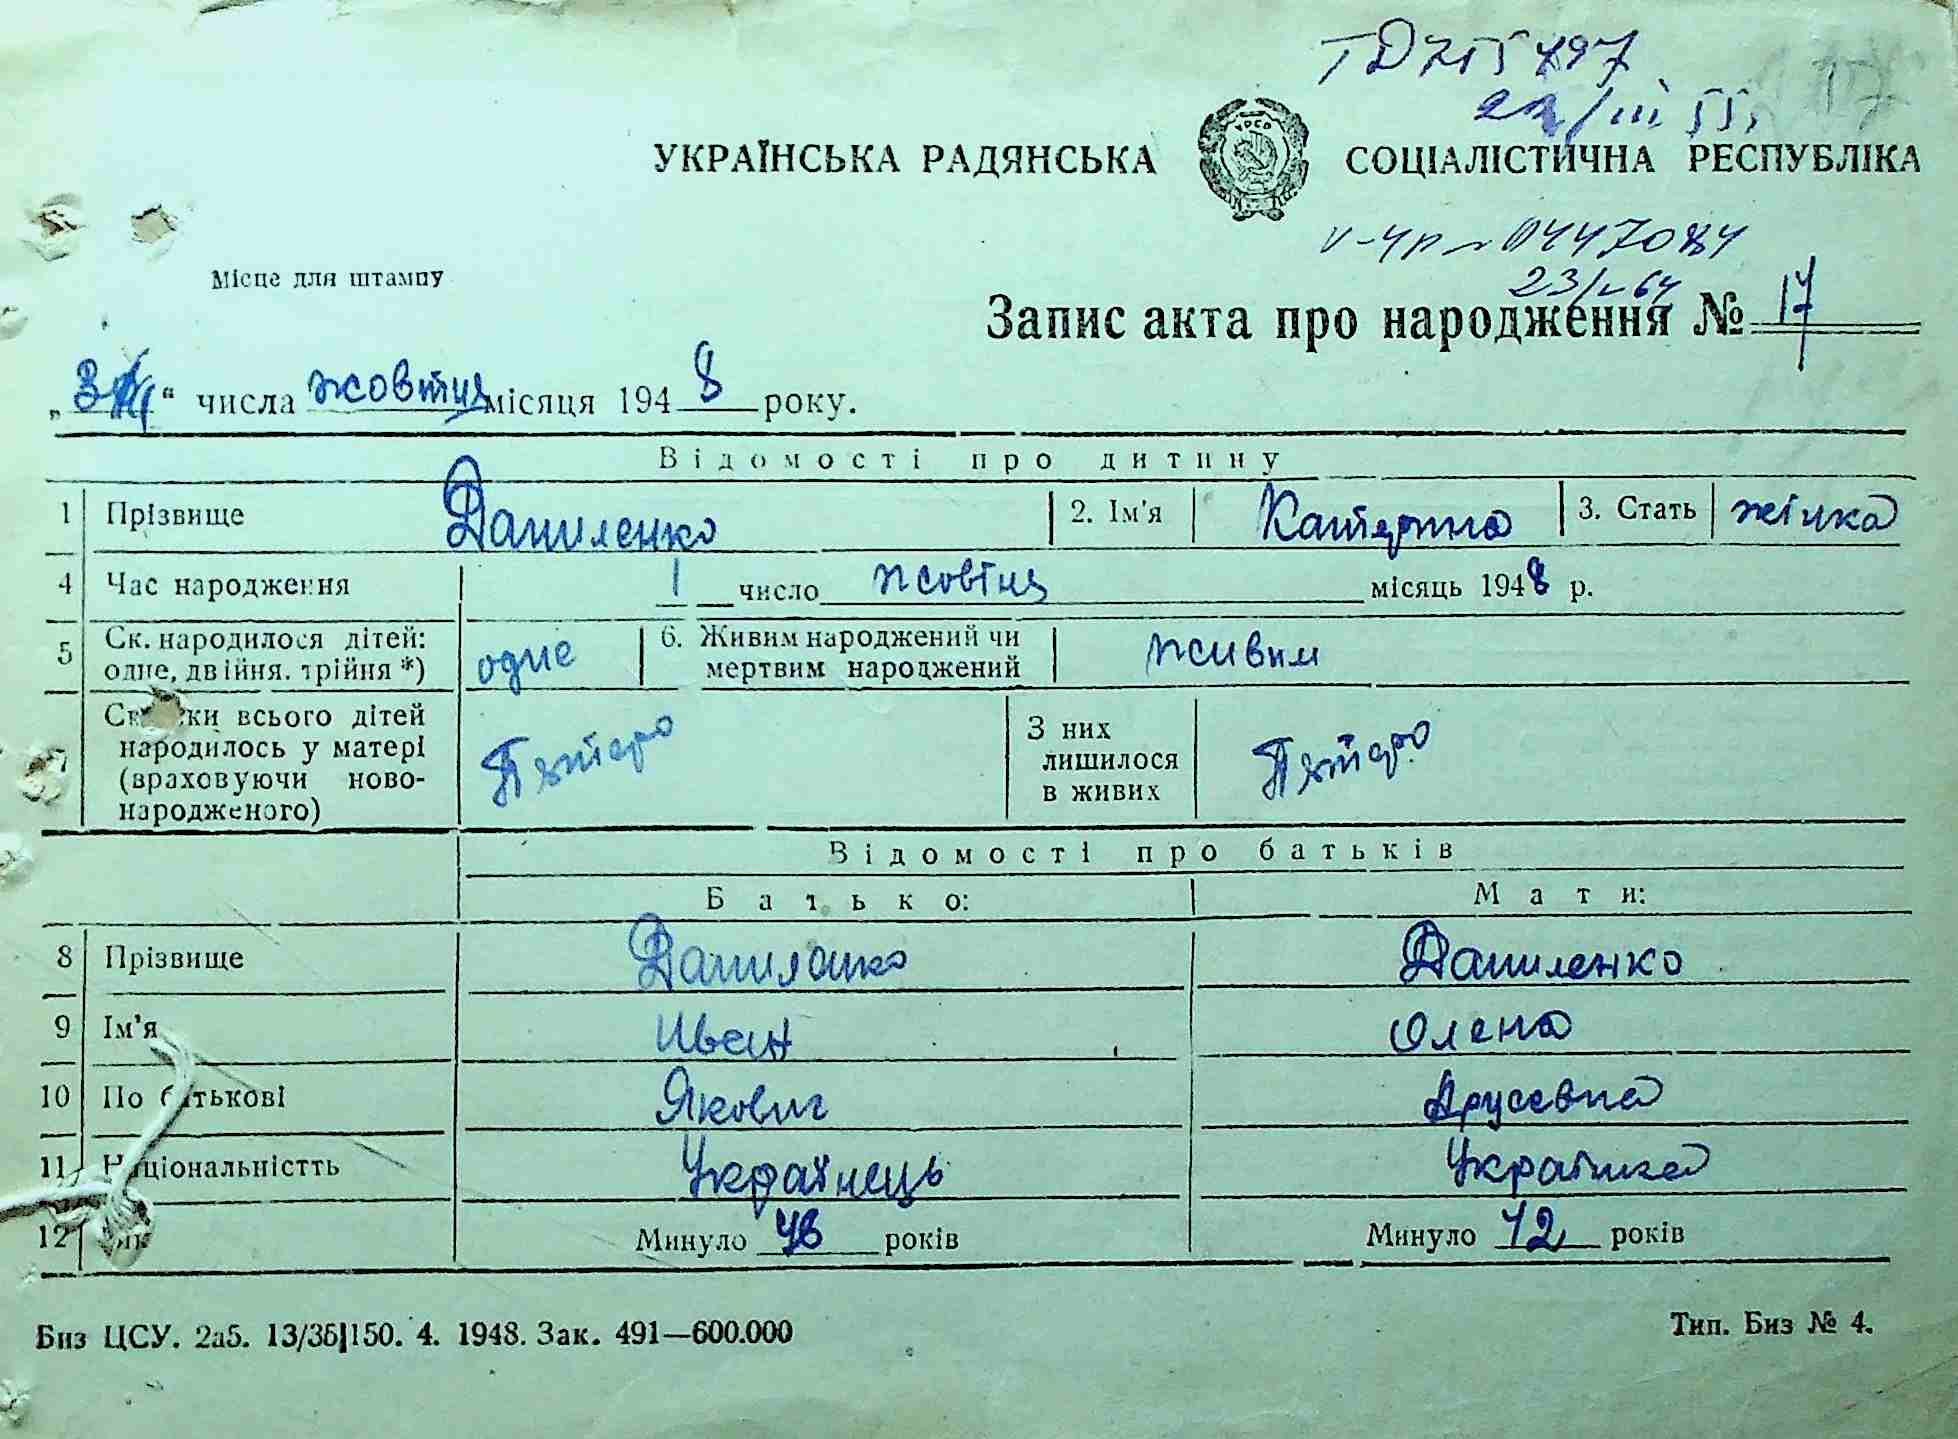 ТД 755497
22/III 55.
17
УКРАЇНСЬКА РАДЯНСЬКА СОЦІАЛІСТИЧНА РЕСПУБЛІКА
УРСР
Місце для штампу
V-УР № 0447084
23/V-64
Запис акта про народження № 17
„ “ числа жовтня місяця 1948 року.
Відомості про дитину
1 Прізвище Даниленко 2. Ім'я Катерина 3. Стать жінка
4 Час народження 1 число жовтня місяць 1948 р.
5 Ск. народилося дітей: одне, двійня. трійня *) одне 6. Живим народжений чи мертвим народжений живим
7 Скільки всього дітей народилось у матері (враховуючи новонародженого) Пятеро З них лишилося в живих Пятеро
Відомості про батьків
Батько: Мати:
8 Прізвище Даниленко Даниленко
9 Ім'я Иван Олена
10 По батькові Якович
11 Національністть Українець Українка
12 Вік Минуло 48 років Минуло 42 років
Биз ЦСУ. 2а5. 13/3б|150. 4. 1948. Зак. 491—600.000 Тип. Биз № 4.